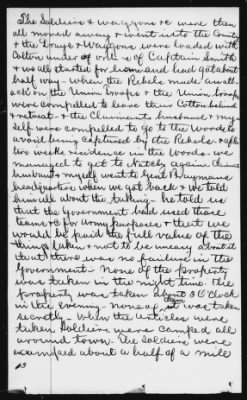 The Soldiers & waggons &c were then
all moved away & went into the County
& the Drays & Waggons were loaded with
Cotton under of orders of Captain Smith
& we all started for home and had got about
half way when the Rebels made an att-
ack on the Union Troops & the Union troops
were compelled to leave their Cotton behind
& retreat - & the Claimants husband & my
self were compelled to go to the Woods to
avoid being captured by the Rebels. & after
two weeks residence in the Woods we
managed to get to Natchez again. Claims
husband & myself went to Genl Braymans
headquarters when we got back & we told
him all about the taking - he told us
that the Government had used those
teams &c for Army purposes & that we
would be paid the full value of the
things taken & not to be uneasy about it
that there was no failure in the
Government - None of the property
was taken in the night time. The
property was taken about 3 O'Clock
in the evening - None of them it was taken
secretly - When the articles were
taken Soldiers were camped all
around town. The Soldiers were
camped about a half of a mile